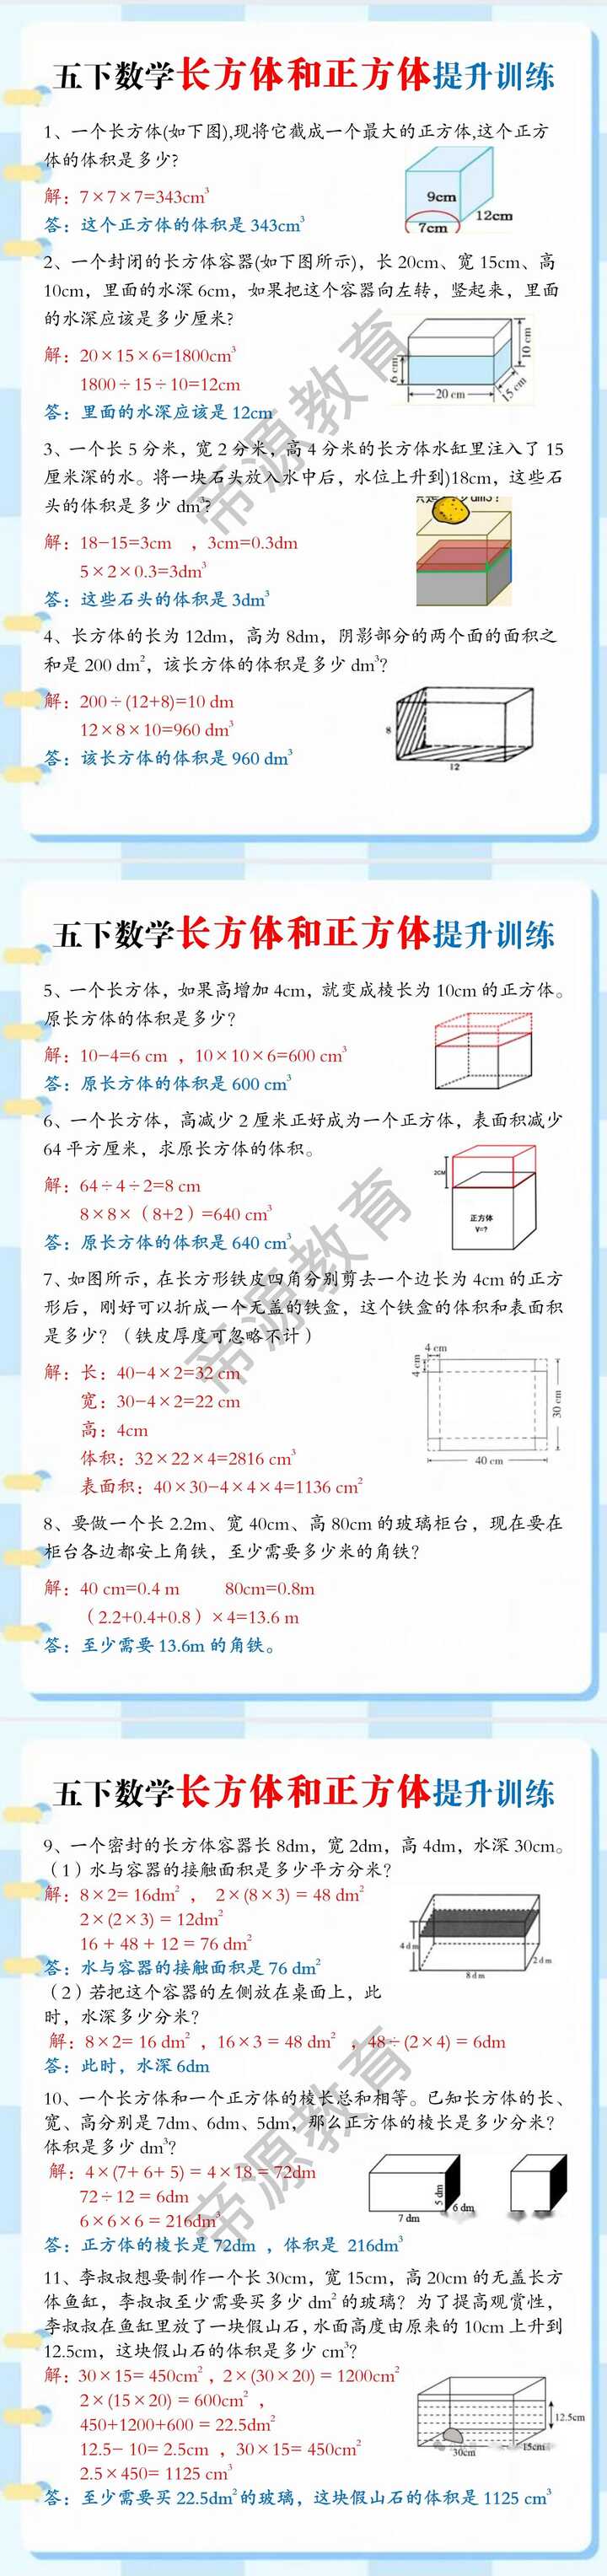 五下数学长方体和正方体提升训练
1、一个长方体(如下图),现将它截成一个最大的正方体,这个正方
体的体积是多少?
解：7×7×7=343cm³
答：这个正方体的体积是 343cm³
9cm
12cm
7cm
2、一个封闭的长方体容器(如下图所示)，长 20cm、宽 15cm、高
10cm，里面的水深 6cm，如果把这个容器向左转，竖起来，里面
的水深应该是多少厘米?
解：20×15×6=1800cm³
1800÷15÷10=12cm
答：里面的水深应该是 12cm
6 cm
20 cm
15 cm
10 cm
3、一个长 5 分米，宽 2 分米，高 4 分米的长方体水缸里注入了 15
厘米深的水。将一块石头放入水中后，水位上升到)18cm，这些石
头的体积是多少 dm³?
解：18−15=3cm ，3cm=0.3dm
5×2×0.3=3dm³
答：这些石头的体积是 3dm³
4、长方体的长为 12dm，高为 8dm，阴影部分的两个面的面积之
和是 200 dm²，该长方体的体积是多少 dm³?
解：200÷(12+8)=10 dm
12×8×10=960 dm³
答：该长方体的体积是 960 dm³
8
12
帝源教育
五下数学长方体和正方体提升训练
5、一个长方体，如果高增加 4cm，就变成棱长为 10cm 的正方体。
原长方体的体积是多少?
解：10−4=6 cm ，10×10×6=600 cm³
答：原长方体的体积是 600 cm³
6、一个长方体，高减少 2 厘米正好成为一个正方体，表面积减少
64 平方厘米，求原长方体的体积。
解：64÷4÷2=8 cm
8×8×（8+2）=640 cm³
答：原长方体的体积是 640 cm³
2CM
正方体
V=?
7、如图所示，在长方形铁皮四角分别剪去一个边长为 4cm 的正方
形后，刚好可以折成一个无盖的铁盒，这个铁盒的体积和表面积
是多少？（铁皮厚度可忽略不计）
解：长：40−4×2=32 cm
宽：30−4×2=22 cm
高：4cm
体积：32×22×4=2816 cm³
表面积：40×30−4×4×4=1136 cm²
4 cm
4 cm
30 cm
40 cm
8、要做一个长 2.2m、宽 40cm、高 80cm 的玻璃柜台，现在要在
柜台各边都安上角铁，至少需要多少米的角铁?
解：40 cm=0.4 m 80cm=0.8m
（2.2+0.4+0.8）×4=13.6 m
答：至少需要 13.6m 的角铁。
帝源教育
五下数学长方体和正方体提升训练
9、一个密封的长方体容器长 8dm，宽 2dm，高 4dm，水深 30cm。
（1）水与容器的接触面积是多少平方分米?
解：8×2= 16dm² ， 2×(8×3) = 48 dm²
2×(2×3) = 12dm²
16 + 48 + 12 = 76 dm²
答：水与容器的接触面积是 76 dm²
4 dm
8 dm
2 dm
（2）若把这个容器的左侧放在桌面上，此
时，水深多少分米?
解：8×2= 16 dm² ，16×3 = 48 dm² ，48÷(2×4) = 6dm
答：此时，水深 6dm
10、一个长方体和一个正方体的棱长总和相等。已知长方体的长、
宽、高分别是 7dm、6dm、5dm，那么正方体的棱长是多少分米?
体积是多少 dm³?
解：4×(7+ 6+ 5) = 4×18 = 72dm
72÷12 = 6dm
6×6×6 = 216dm³
答：正方体的棱长是 72dm ，体积是 216dm³
5 dm
6 dm
7 dm
11、李叔叔想要制作一个长 30cm，宽 15cm，高 20cm 的无盖长方
体鱼缸，李叔叔至少需要买多少 dm² 的玻璃？为了提高观赏性，
李叔叔在鱼缸里放了一块假山石,水面高度由原来的 10cm 上升到
12.5cm，这块假山石的体积是多少 cm³?
解：30×15= 450cm² ，2×(30×20) = 1200cm²
2×(15×20) = 600cm² ，
450+1200+600 = 22.5dm²
12.5− 10= 2.5cm ，30×15= 450cm²
2.5×450= 1125 cm³
答：至少需要买 22.5dm² 的玻璃，这块假山石的体积是 1125 cm³
12.5cm
15cm
30cm
帝源教育